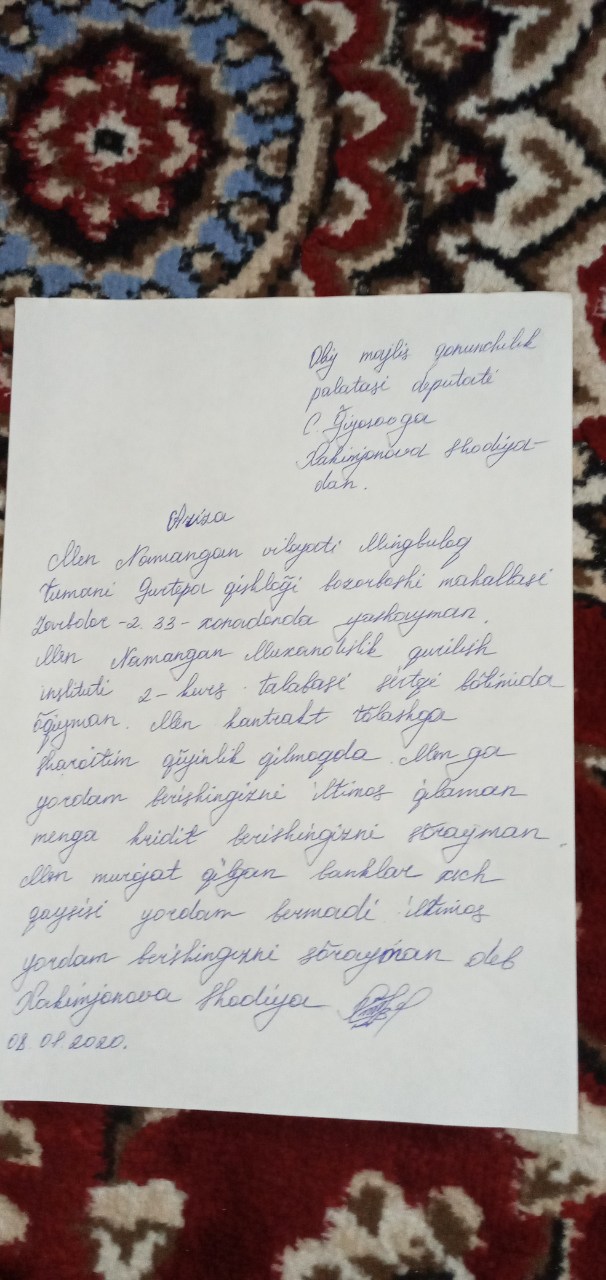 Oliy majlis qonunchilik
palatasi deputati
C. Ğiyosovga
Xakimjonova Shodiya-
dan.
Ariza
Men Namangan viloyati Mingbuloq
tumani Gurtepa qishloği bozorboshi mahallasi
Zarbdor -2. 33- xonadonda yashayman.
Men Namangan Muxandislik qurilish
instituti 2- kurs talabasi sirtqi bölimida
öqiyman. Men kantrakt tölashga
sharoitim qiyinlik qilmoqda. Men ga
yordam berishingizni iltimos qilaman
menga kridit berishingizni sörayman.
Men murojat qilgan banklar xich
qaysisi yordam bermadi iltimos
yordam berishingizni sörayman deb
Xakimjonova Shodiya
08.01.2020.